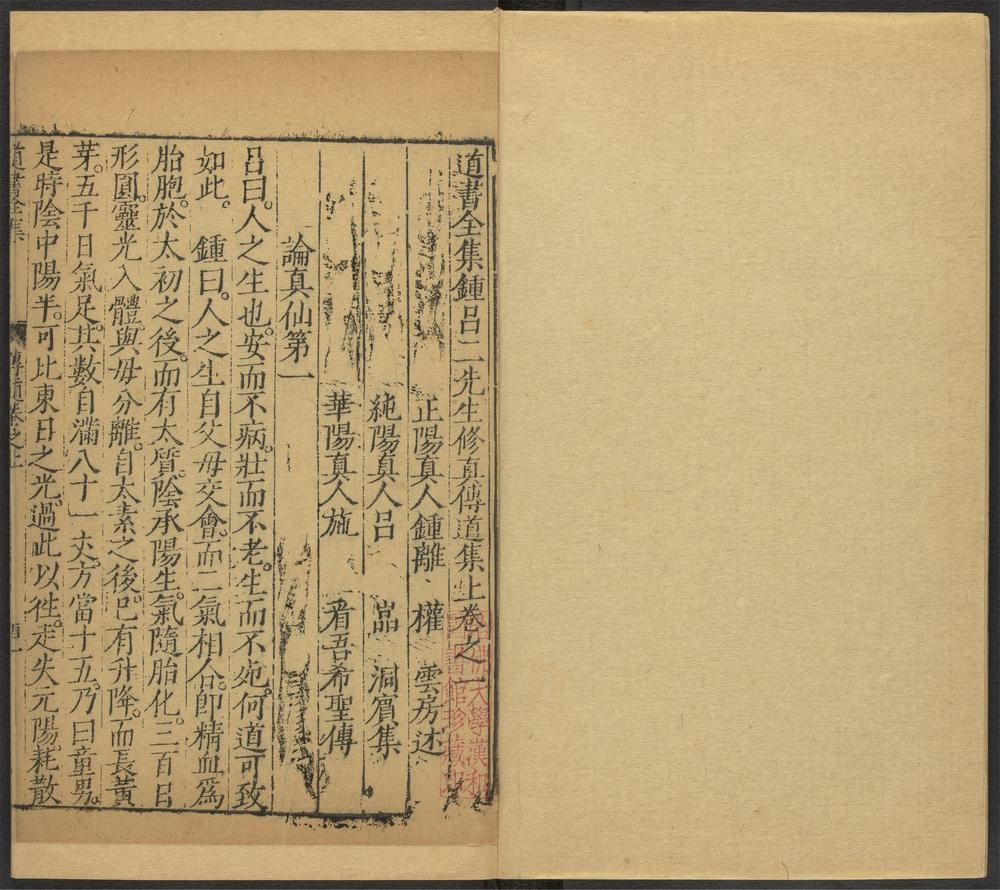 道書全集鍾呂二先生修真傳道集上卷之一
正陽真人鍾離 權 雲房述
純陽真人呂 嵒 洞賓集
華陽真人施 肩吾希聖傳
論真仙第一
呂曰。人之生也。安而不病。壯而不老。生而不死。何道可致
如此。 鍾曰。人之生自父母交會。而二氣相合。卽精血爲
胎胞。於太初之後。而有太質。陰承陽生。氣隨胎化。三百日
形圓。靈光入體。與母分離。自太素之後。已有升降。而長黃
芽。五千日氣足。其數自滿八十一丈。方當十五。乃曰童男。
是時陰中陽半。可比東日之光。過此以徃。走失元陽。耗散
道書全集
傳道卷之上
哈佛大學漢和
圖書館珍藏印